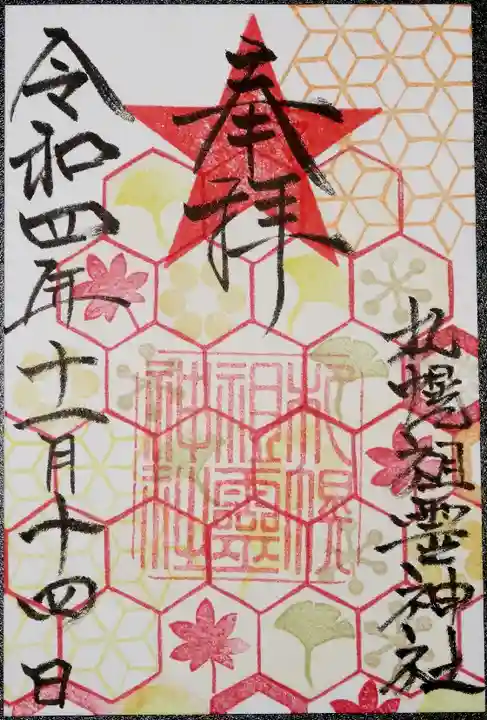 奉拝
札幌祖霊神社
札幌祖霊神社
令和四年十一月十四日